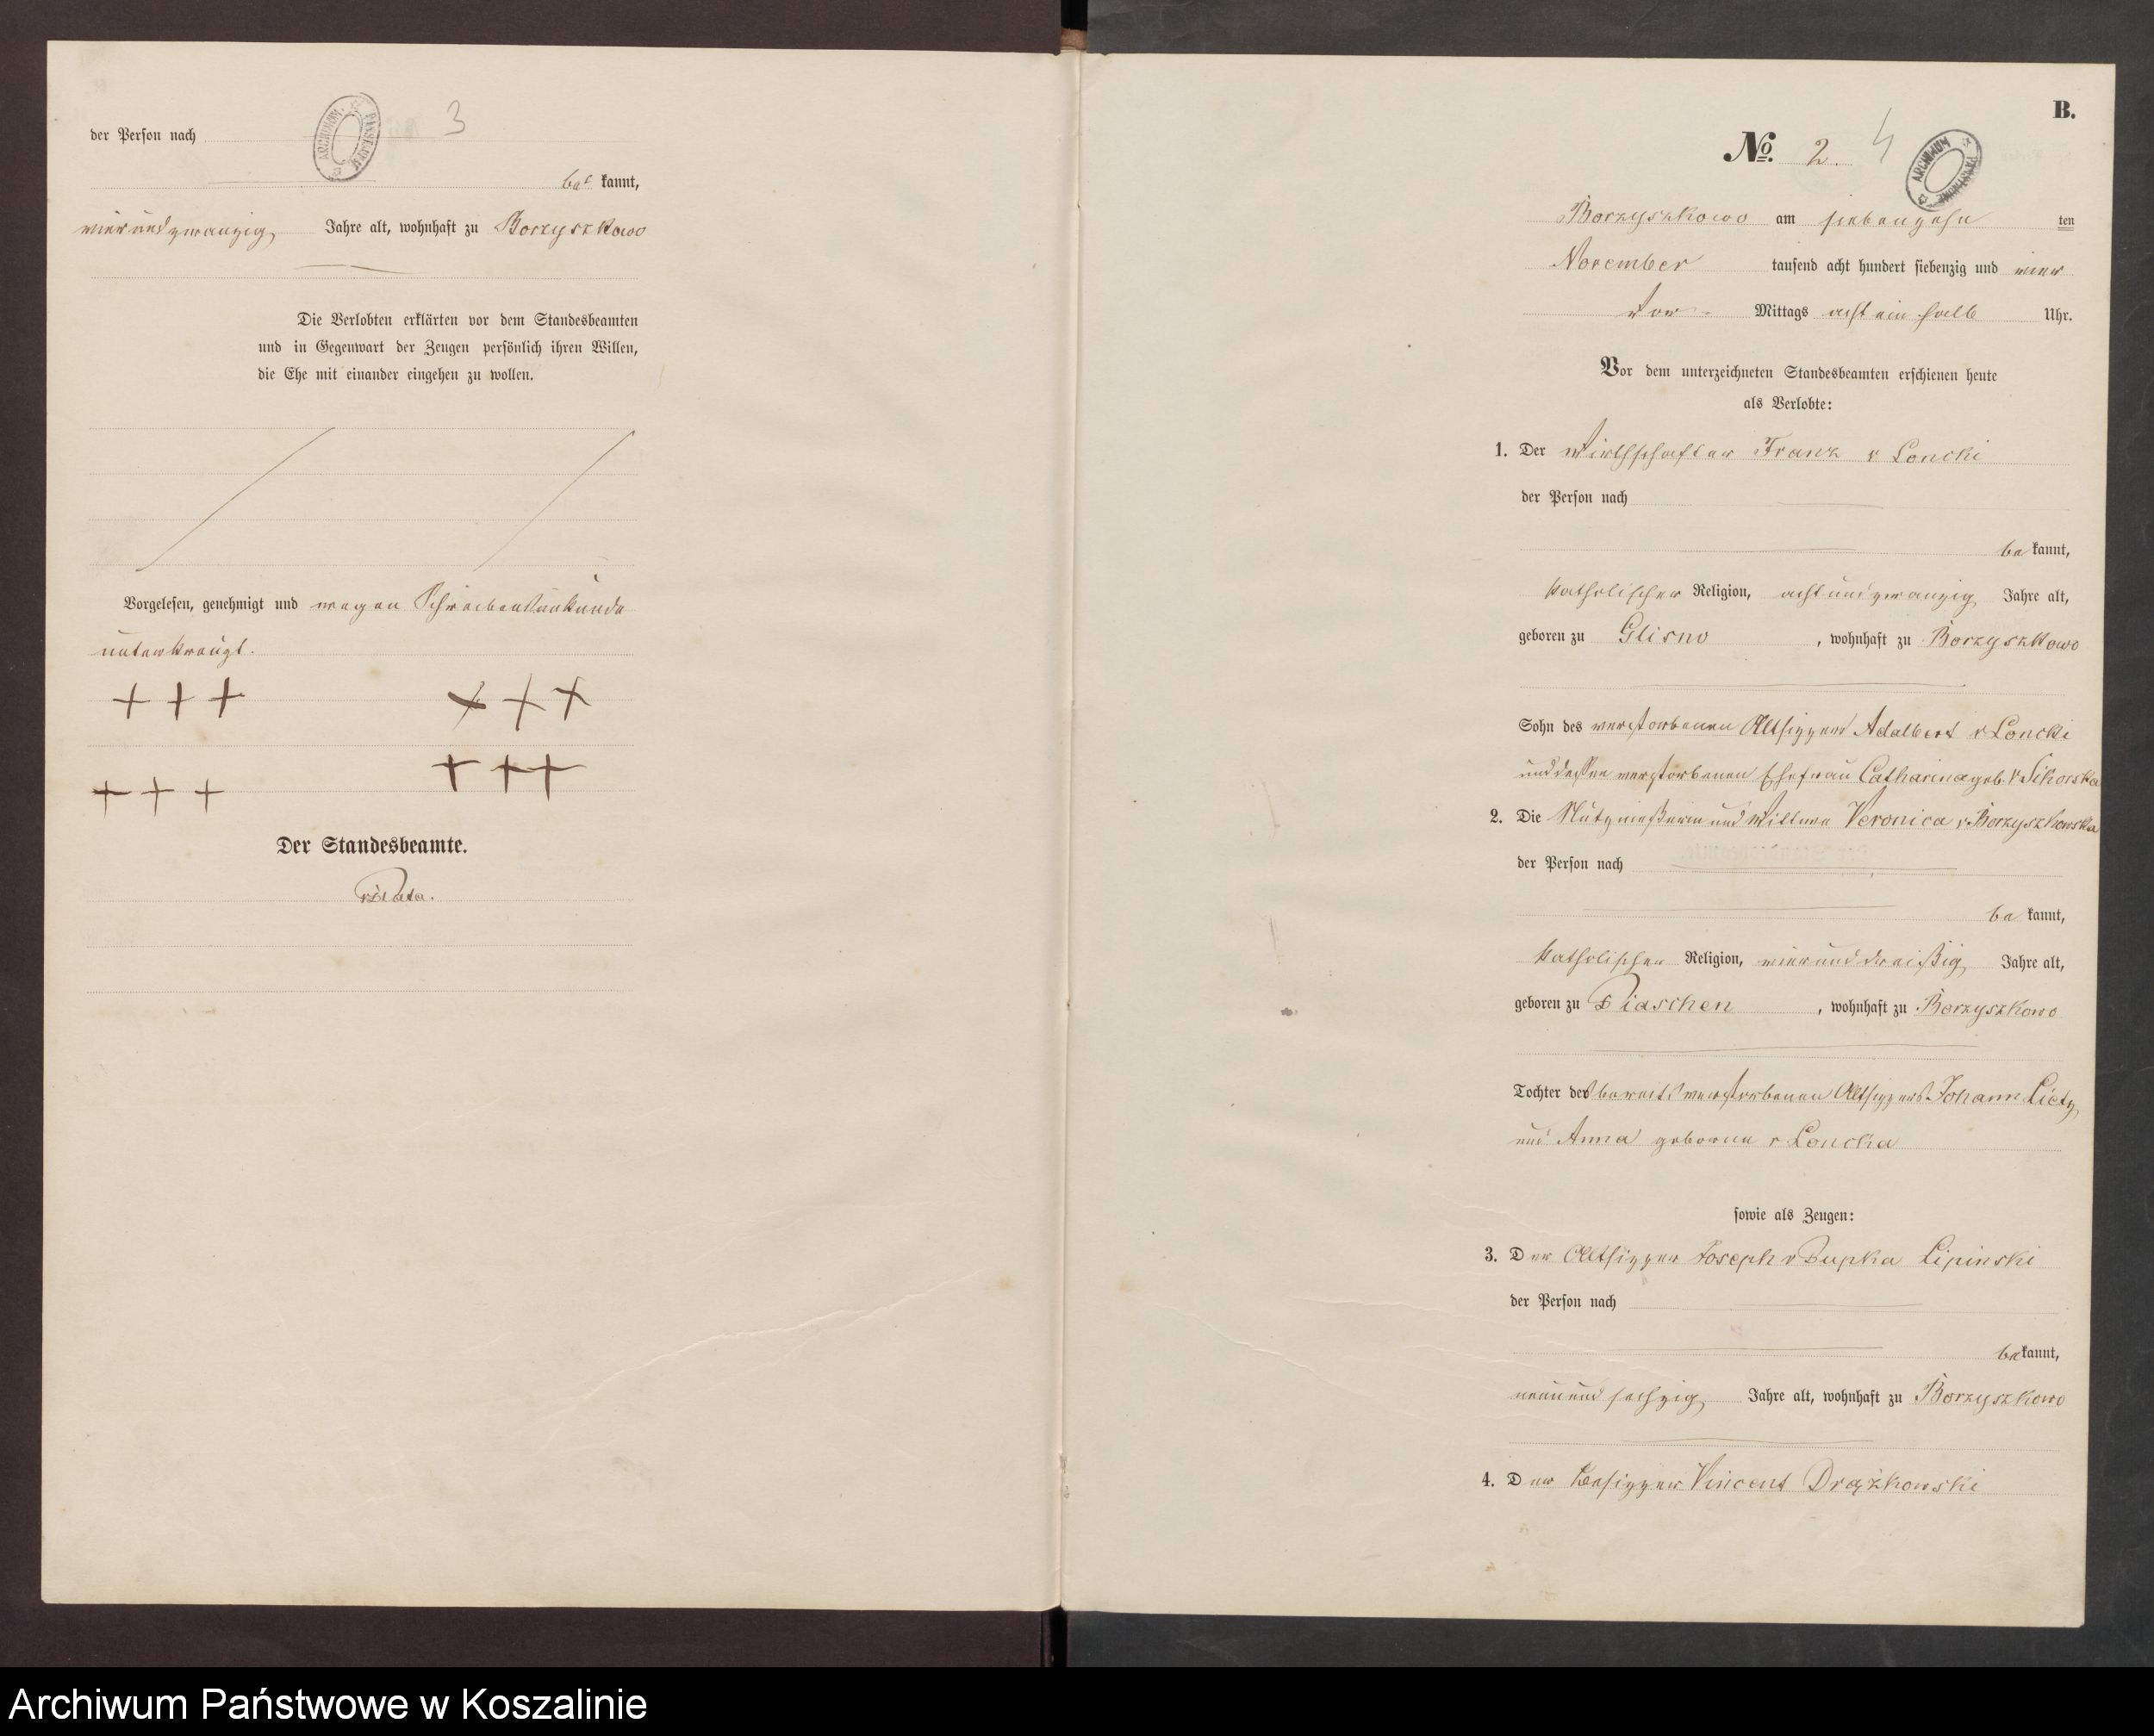 3
der Person nach
be kannt,
vierundzwanzig Jahre alt, wohnhaft zu Borzyszkowo
Die Verlobten erklärten vor dem Standesbeamten
und in Gegenwart der Zeugen persönlich ihren Willen,
die Ehe mit einander eingehen zu wollen.
Vorgelesen, genehmigt und wegen Schreibensunkunde
unterkreuzt.
+ + + + + +
+ + + + + +
Der Standesbeamte.
B.
No. 2. 4
ARCHIWUM PAŃSTWOWE
Borzyszkowo am siebenzehn ten
November tausend acht hundert siebenzig und vier
Vor- Mittags acht ein halb Uhr.
Vor dem unterzeichneten Standesbeamten erschienen heute
als Verlobte:
1. Der Wirthschafter Franz v Loncki
der Person nach
be kannt,
katholischer Religion, achtundzwanzig Jahre alt,
geboren zu Glisno, wohnhaft zu Borzyszkowo
Sohn des verstorbenen Altsitzers Adalbert v Loncki
und dessen verstorbenen Ehefrau Catharina geb. v Sikorska
2. Die Nutznießerin und Wittwe Veronica v Borzyszkowska
der Person nach
be kannt,
katholischer Religion, vierunddreißig Jahre alt,
geboren zu Piaschen, wohnhaft zu Borzyszkowo
Tochter des bereits verstorbenen Altsitzers Johann
und Anna geborene v Loncka
sowie als Zeugen:
3. Der Altsitzer Joseph v Lipinski
der Person nach
be kannt,
neunundsechzig Jahre alt, wohnhaft zu Borzyszkowo
4. Der Besitzer Vincent Drążkowski
Archiwum Państwowe w Koszalinie